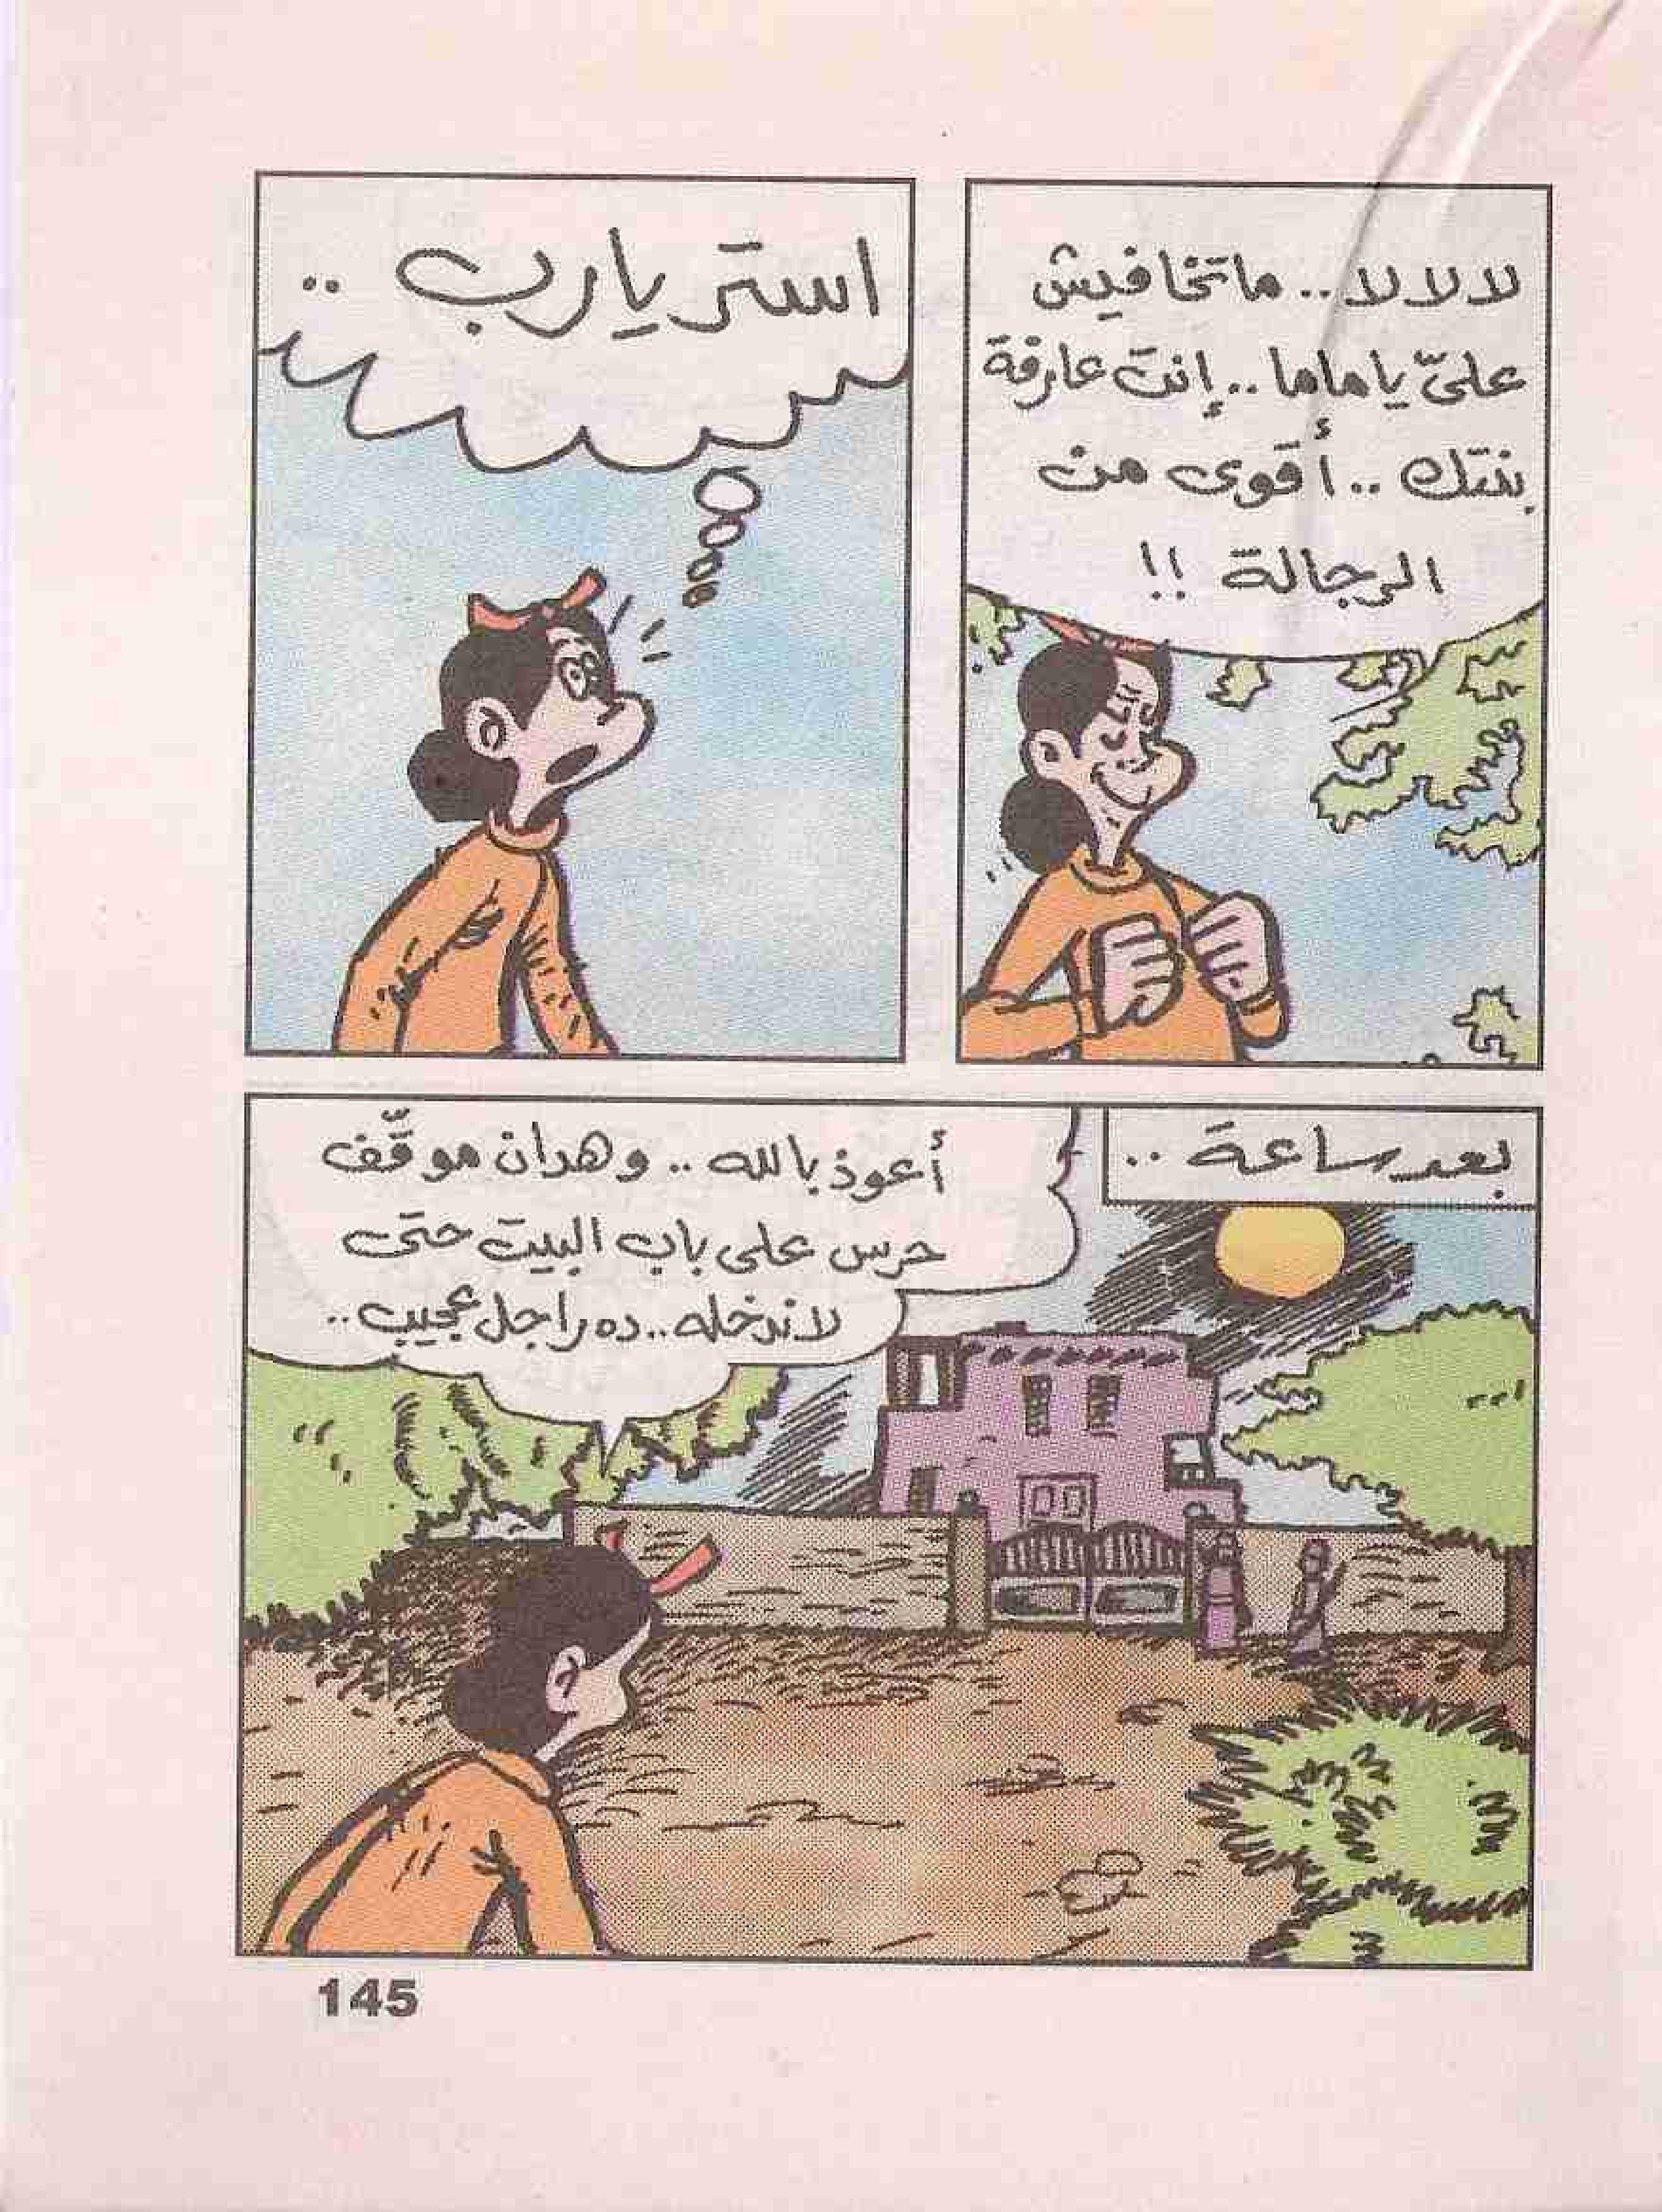 لالالا.. ماتخافيش
عليّ ياماما.. إنت عارفة
بنتك.. أقوى من
الرجالة !!
استر يارب ..
بعد ساعة ..
أعوذ بالله .. وهدان موقّف
حرس على باب البيت حتى
لاندخله.. ده راجل عجيب..
145